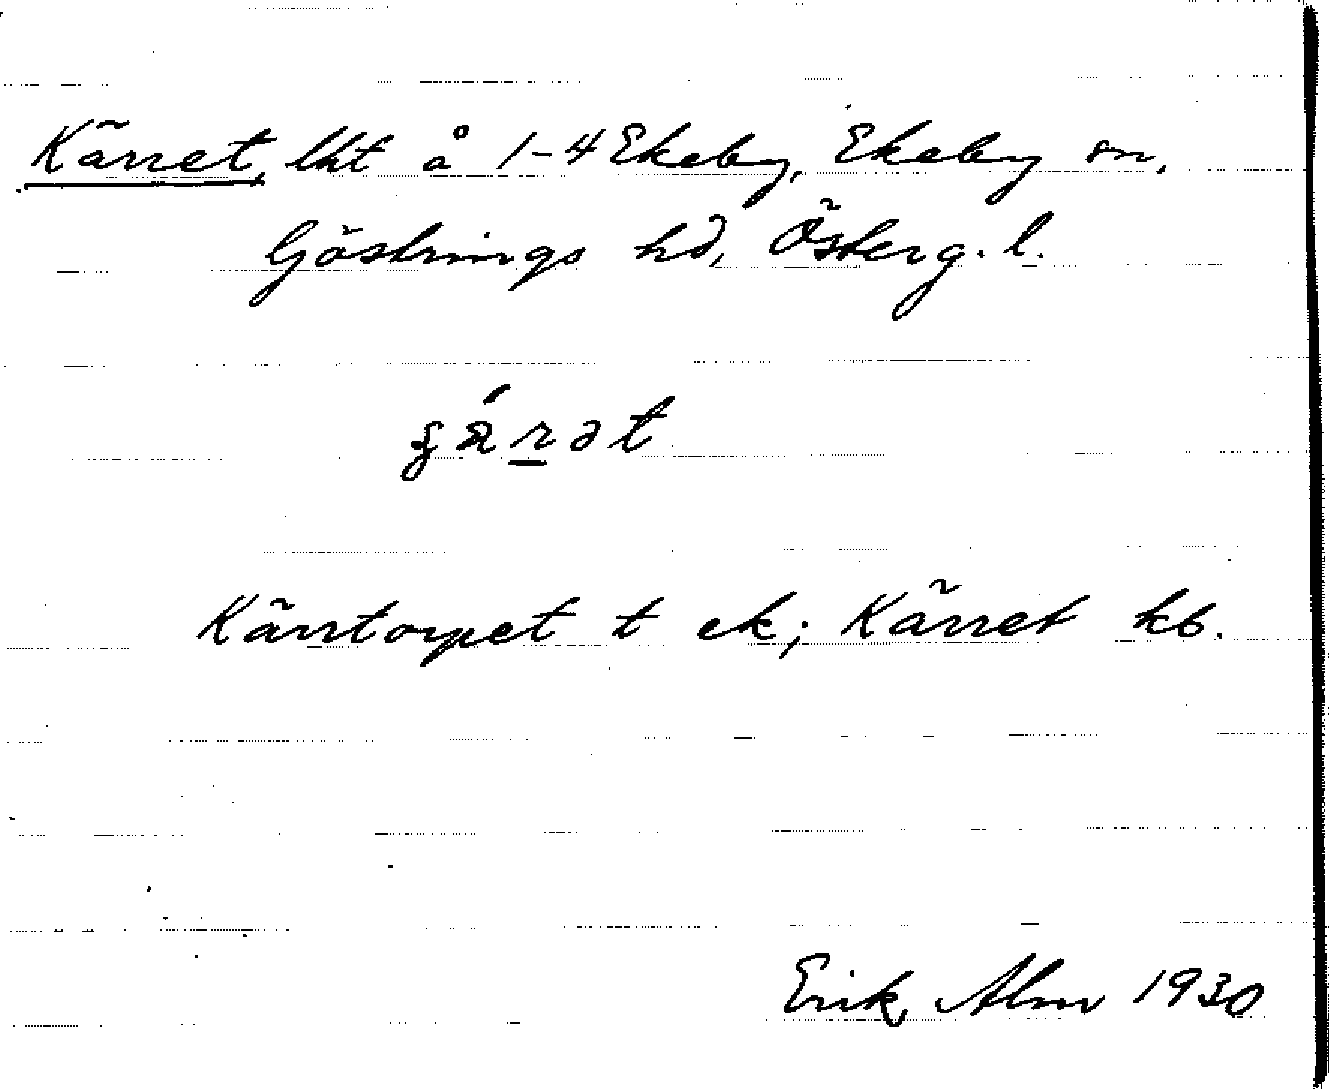 Kärret, lht å 1-4 Ekeby, Ekeby sn,
Göstrings hd, Österg. l.
Kärrtorpet t ek; Kärret kb.
Erik Alm 1930